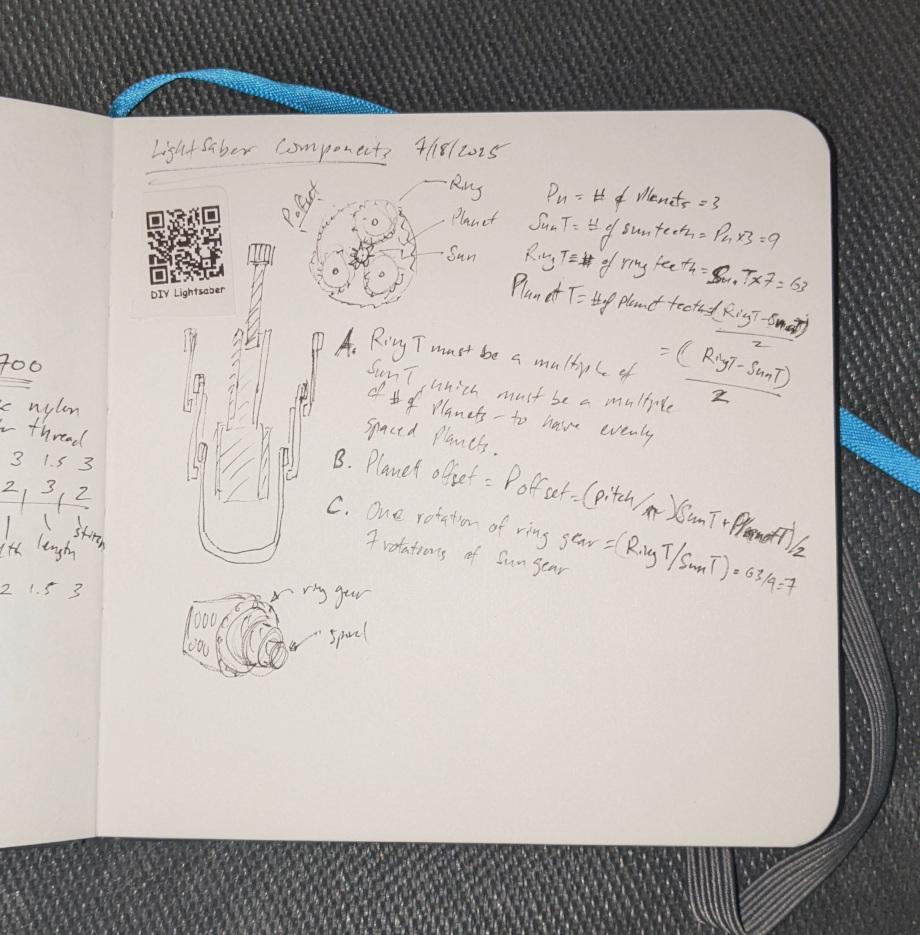 LightSaber Components 7/18/2025
DIY Lightsaber
Poffset
Ring
Planet
Sun
Pn = # of Planets = 3
SunT = # of sun teeth = Pn x 3 = 9
RingT = # of ring teeth = SunT x 7 = 63
PlanetT = # of planet teeth = (RingT - SunT)
2
= (RingT - SunT)
2
A. RingT must be a multiple of
SunT, which must be a multiple
of # of Planets - to have evenly
spaced Planets.
B. Planet offset = Poffset = (pitch/π)(SunT + PlanetT)/2
C. One rotation of ring gear = (RingT/SunT) = 63/9 = 7
7 rotations of sun gear
ring gear
spool
700
nylon
thread
3 1.5 3
2, 3, 2
length
2 1.5 3